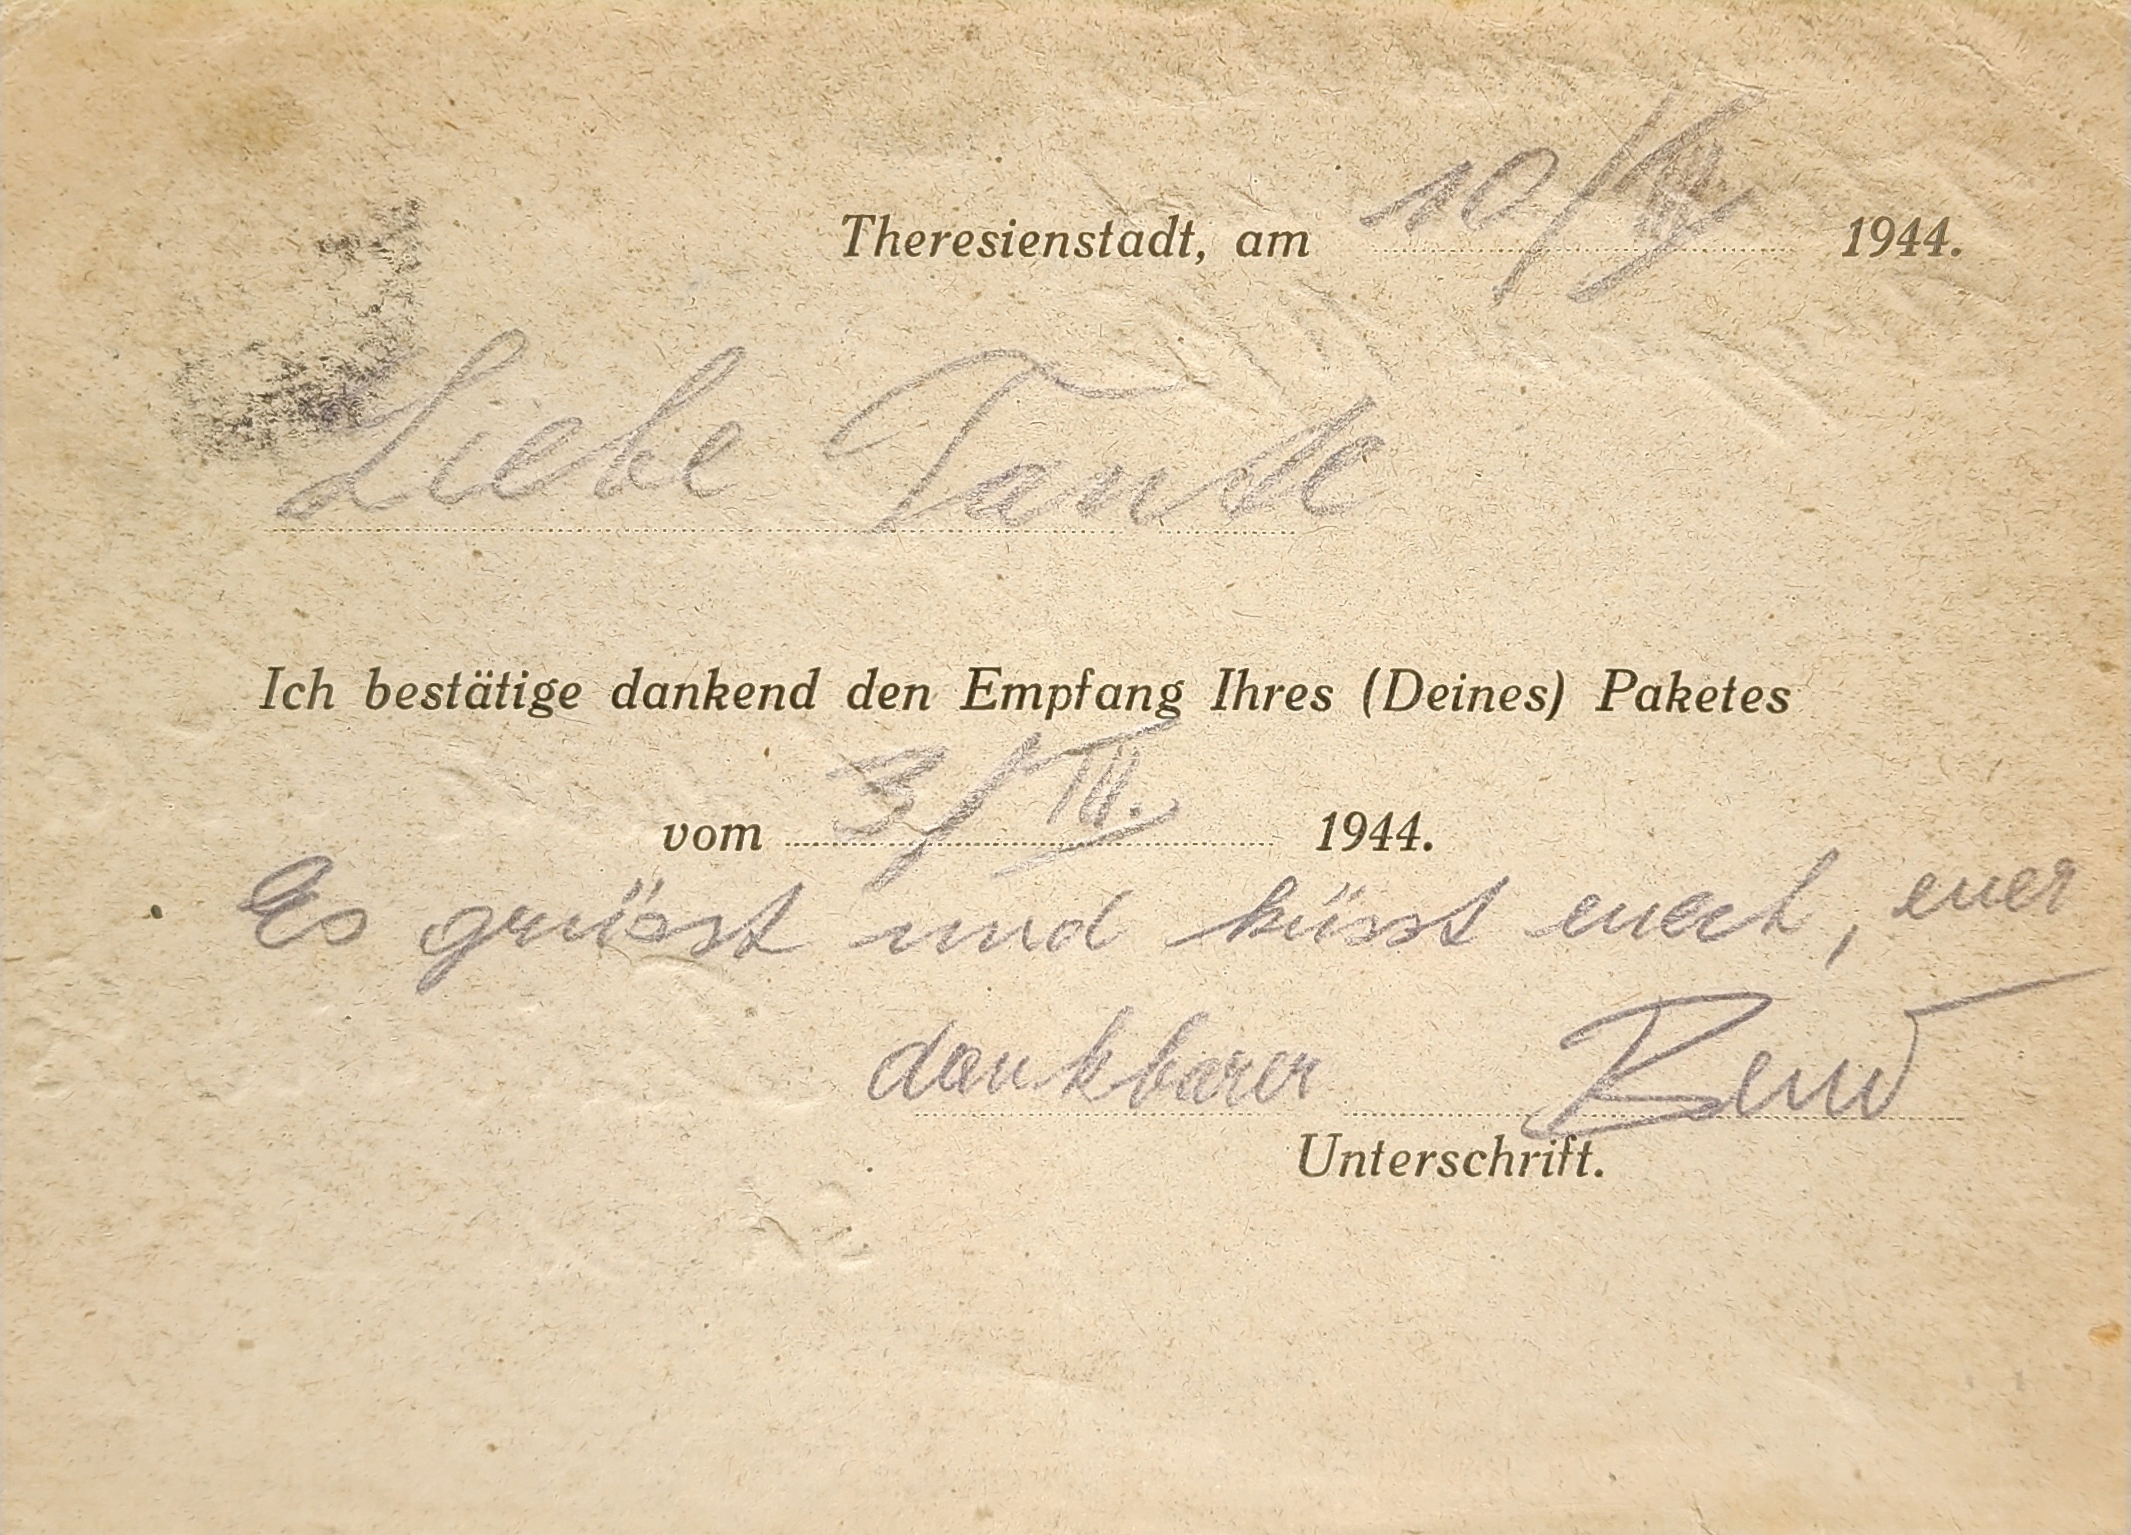 Theresienstadt, am 10/III. 1944.
Liebe Tante
Ich bestätige dankend den Empfang Ihres (Deines) Paketes
vom 3/III. 1944.
Es grüsst und küsst euch, euer
dankbarer
Unterschrift.